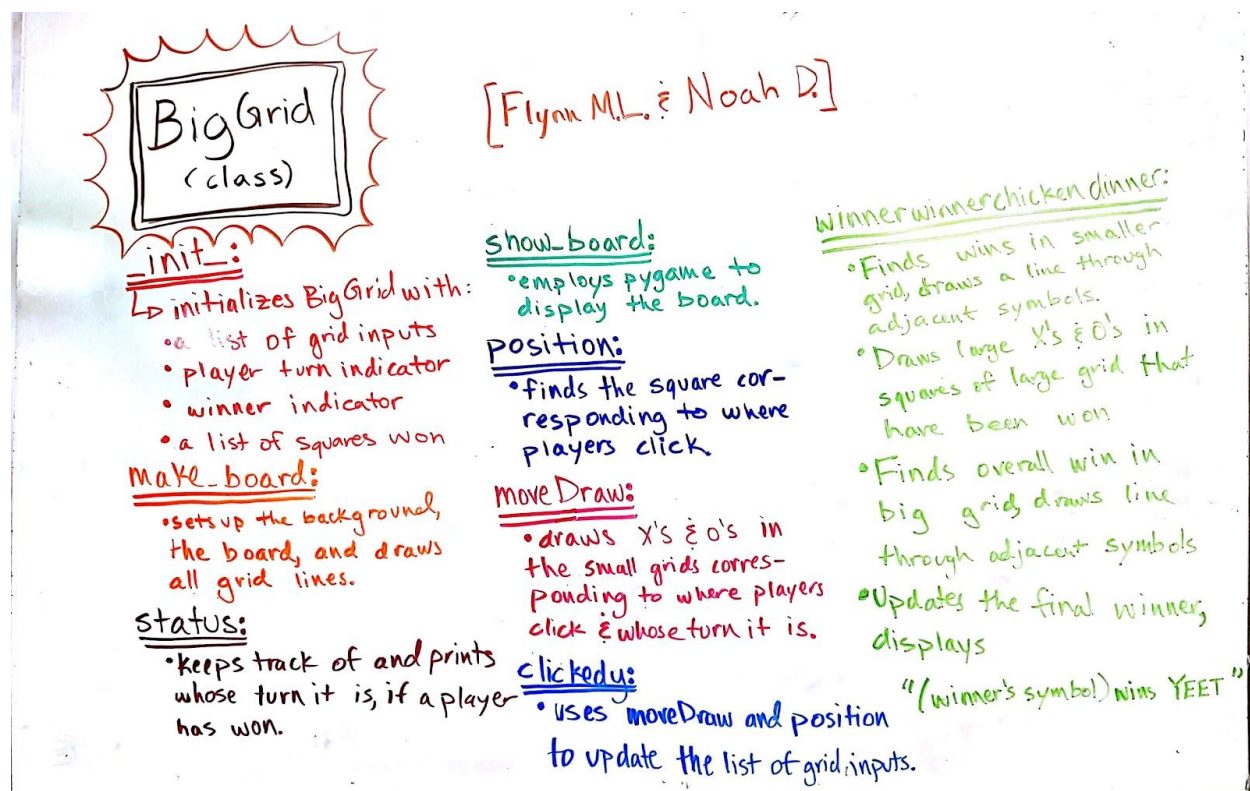 BigGrid
(class)
[Flynn M.L. & Noah D.]
_init_:
↳ initializes BigGrid with:
• a list of grid inputs
• player turn indicator
• winner indicator
• a list of squares won
make_board:
• sets up the background,
the board, and draws
all grid lines.
status:
• keeps track of and prints
whose turn it is, if a player
has won.
show_board:
• employs pygame to
display the board.
position:
• finds the square cor-
responding to where
players click.
moveDraw:
• draws X's & O's in
the small grids corres-
ponding to where players
click & whose turn it is.
clickedy:
• uses moveDraw and position
to update the list of grid inputs.
winnerwinnerchickendinner:
• Finds wins in smaller
grid, draws a line through
adjacent symbols.
• Draws large X's & O's in
squares of large grid that
have been won
• Finds overall win in
big grid, draws line
through adjacent symbols
• Updates the final winner,
displays
"(winner's symbol) wins YEET"